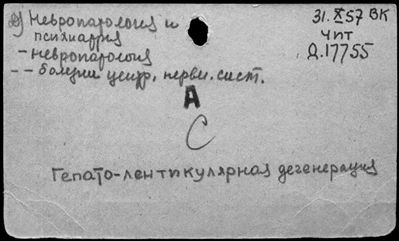 Невропатология и
психиатрия
- невропатология
- - болезни центр. нервн. сист.
31.X 57 ВК
чит
Д.17755
А
С
Гепато-лентикулярная дегенерация